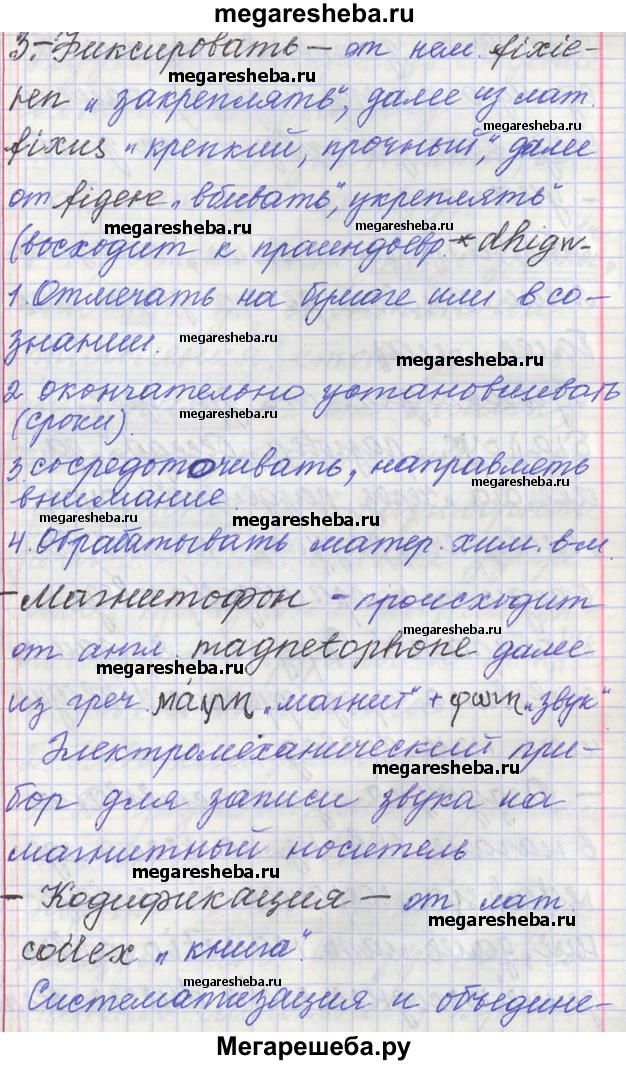 megaresheba.ru
3. – Фиксировать – от нем. fixie-
megaresheba.ru
ren „закреплять“, далее из лат.
megaresheba.ru
fixus „крепкий, прочный“, далее
от figere „вбивать“, укреплять“
megaresheba.ru
(восходит к праиндоевр. *dhigw-
1. Отмечать на бумаге или в со-
знании.
megaresheba.ru
megaresheba.ru
2 окончательно устанавливать
(сроки).
megaresheba.ru
3. сосредоточивать, направлять
внимание
megaresheba.ru
megaresheba.ru
4. Обрабатывать матер. хим. в-м.
– Магнитофон – происходит
megaresheba.ru
от англ. magnetophone далее
megaresheba.ru
из греч. „магнит“ + „звук“
Электромеханический при-
megaresheba.ru
бор для записи звука на
магнитный носитель
megaresheba.ru
– Кодификация – от лат
megaresheba.ru
codex „книга“.
megaresheba.ru
Систематизация и объедине-
Мегарешеба.ру